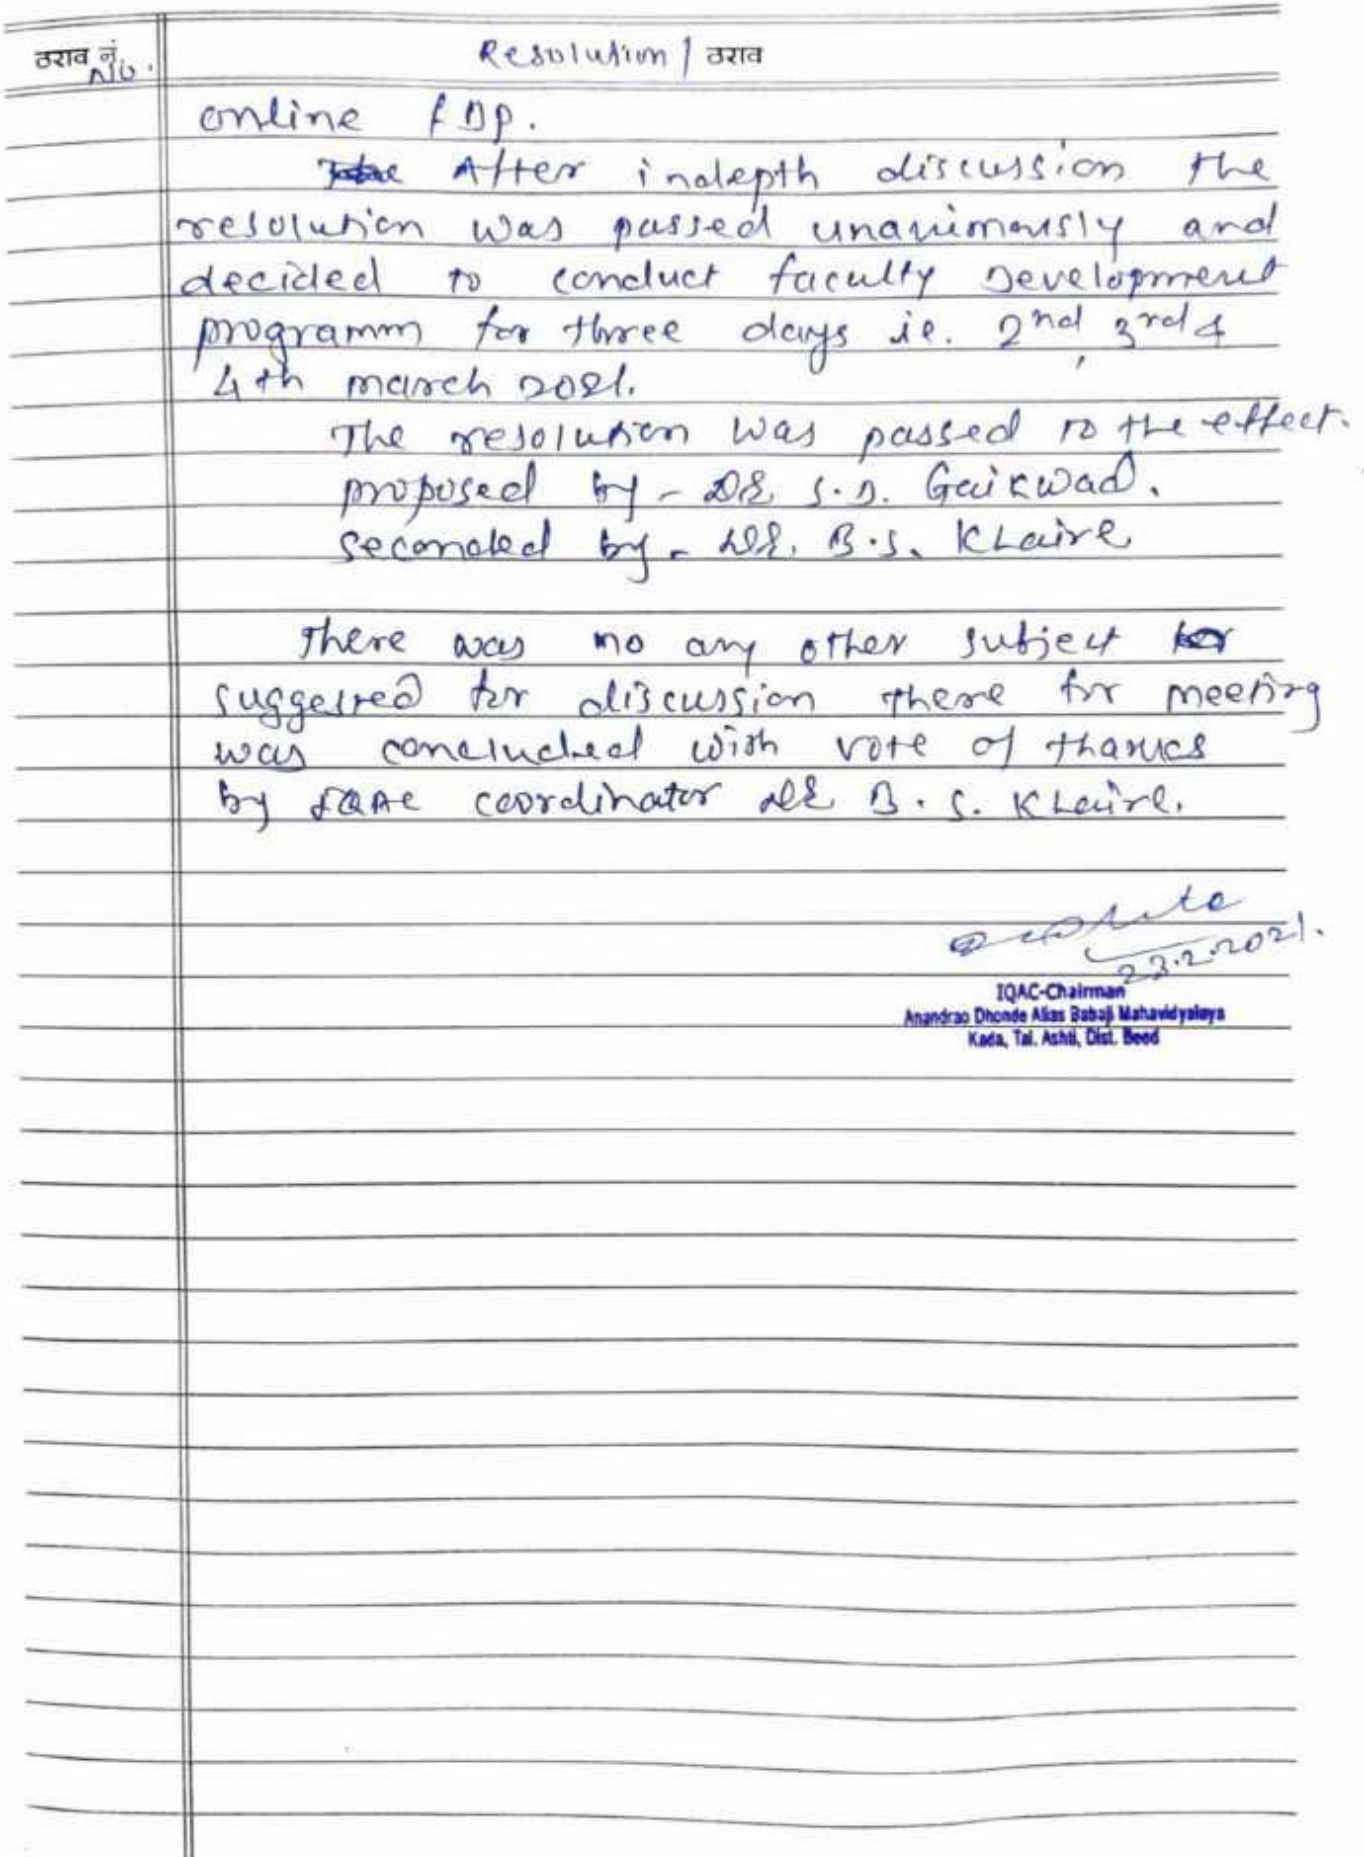 ठराव नं. No. Resolution / ठराव
online FDP.
After indepth discussion the
resolution was passed unanimously and
decided to conduct faculty Development
programm for three days ie. 2nd, 3rd &
4th march 2021.
The resolution was passed to the effect.
proposed by - Dr S.D. Gaikwad.
seconded by - Dr. B.S. Khaire
There was no any other subject
suggested for discussion there for meeting
was concluded with vote of thanks
by IQAC coordinator Dr B.S. Khaire.
23.2.2021.
IQAC-Chairman
Anandrao Dhonde Alias Babaji Mahavidyalaya
Kada, Tal. Ashti, Dist. Beed